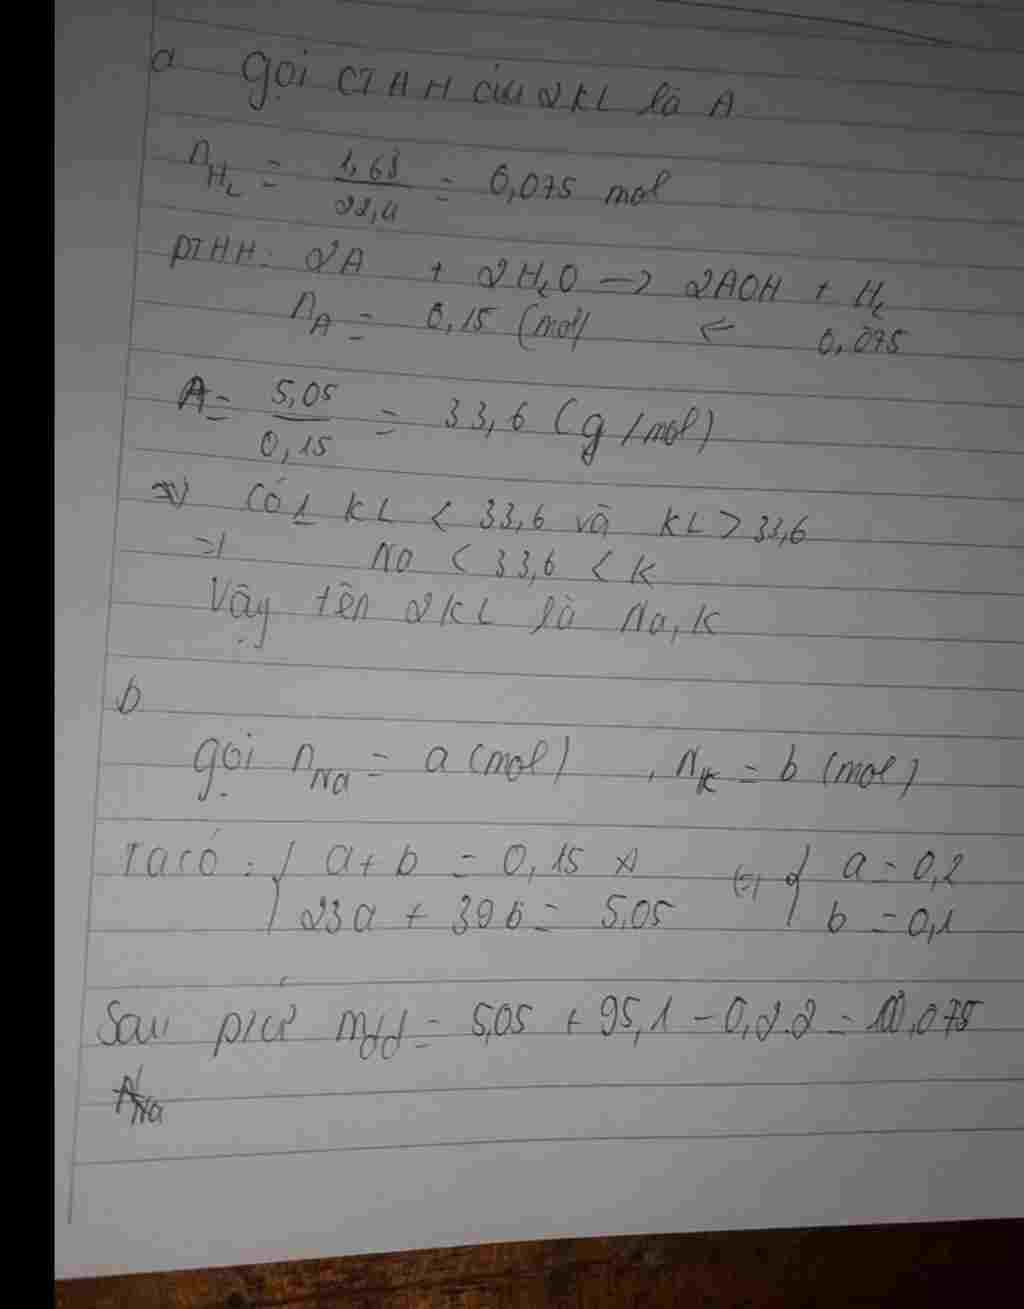 a gọi CTHH của 2KL là A
nH2 = 1,68/22,4 = 0,075 mol
PTHH: 2A + 2H2O -> 2AOH + H2
nA = 0,15 (mol) <- 0,075
A = 5,05/0,15 = 33,6 (g/mol)
=> Có 1 KL < 33,6 và KL > 33,6
=> Na < 33,6 < K
Vậy tên 2KL là Na, K
b
gọi nNa = a (mol), nK = b (mol)
Ta có: { a + b = 0,15 (=) { a = 0,2
23a + 39b = 5,05 b = 0,1
Sau pứ mdd = 5,05 + 95,1 - 0,2.2 = ,075